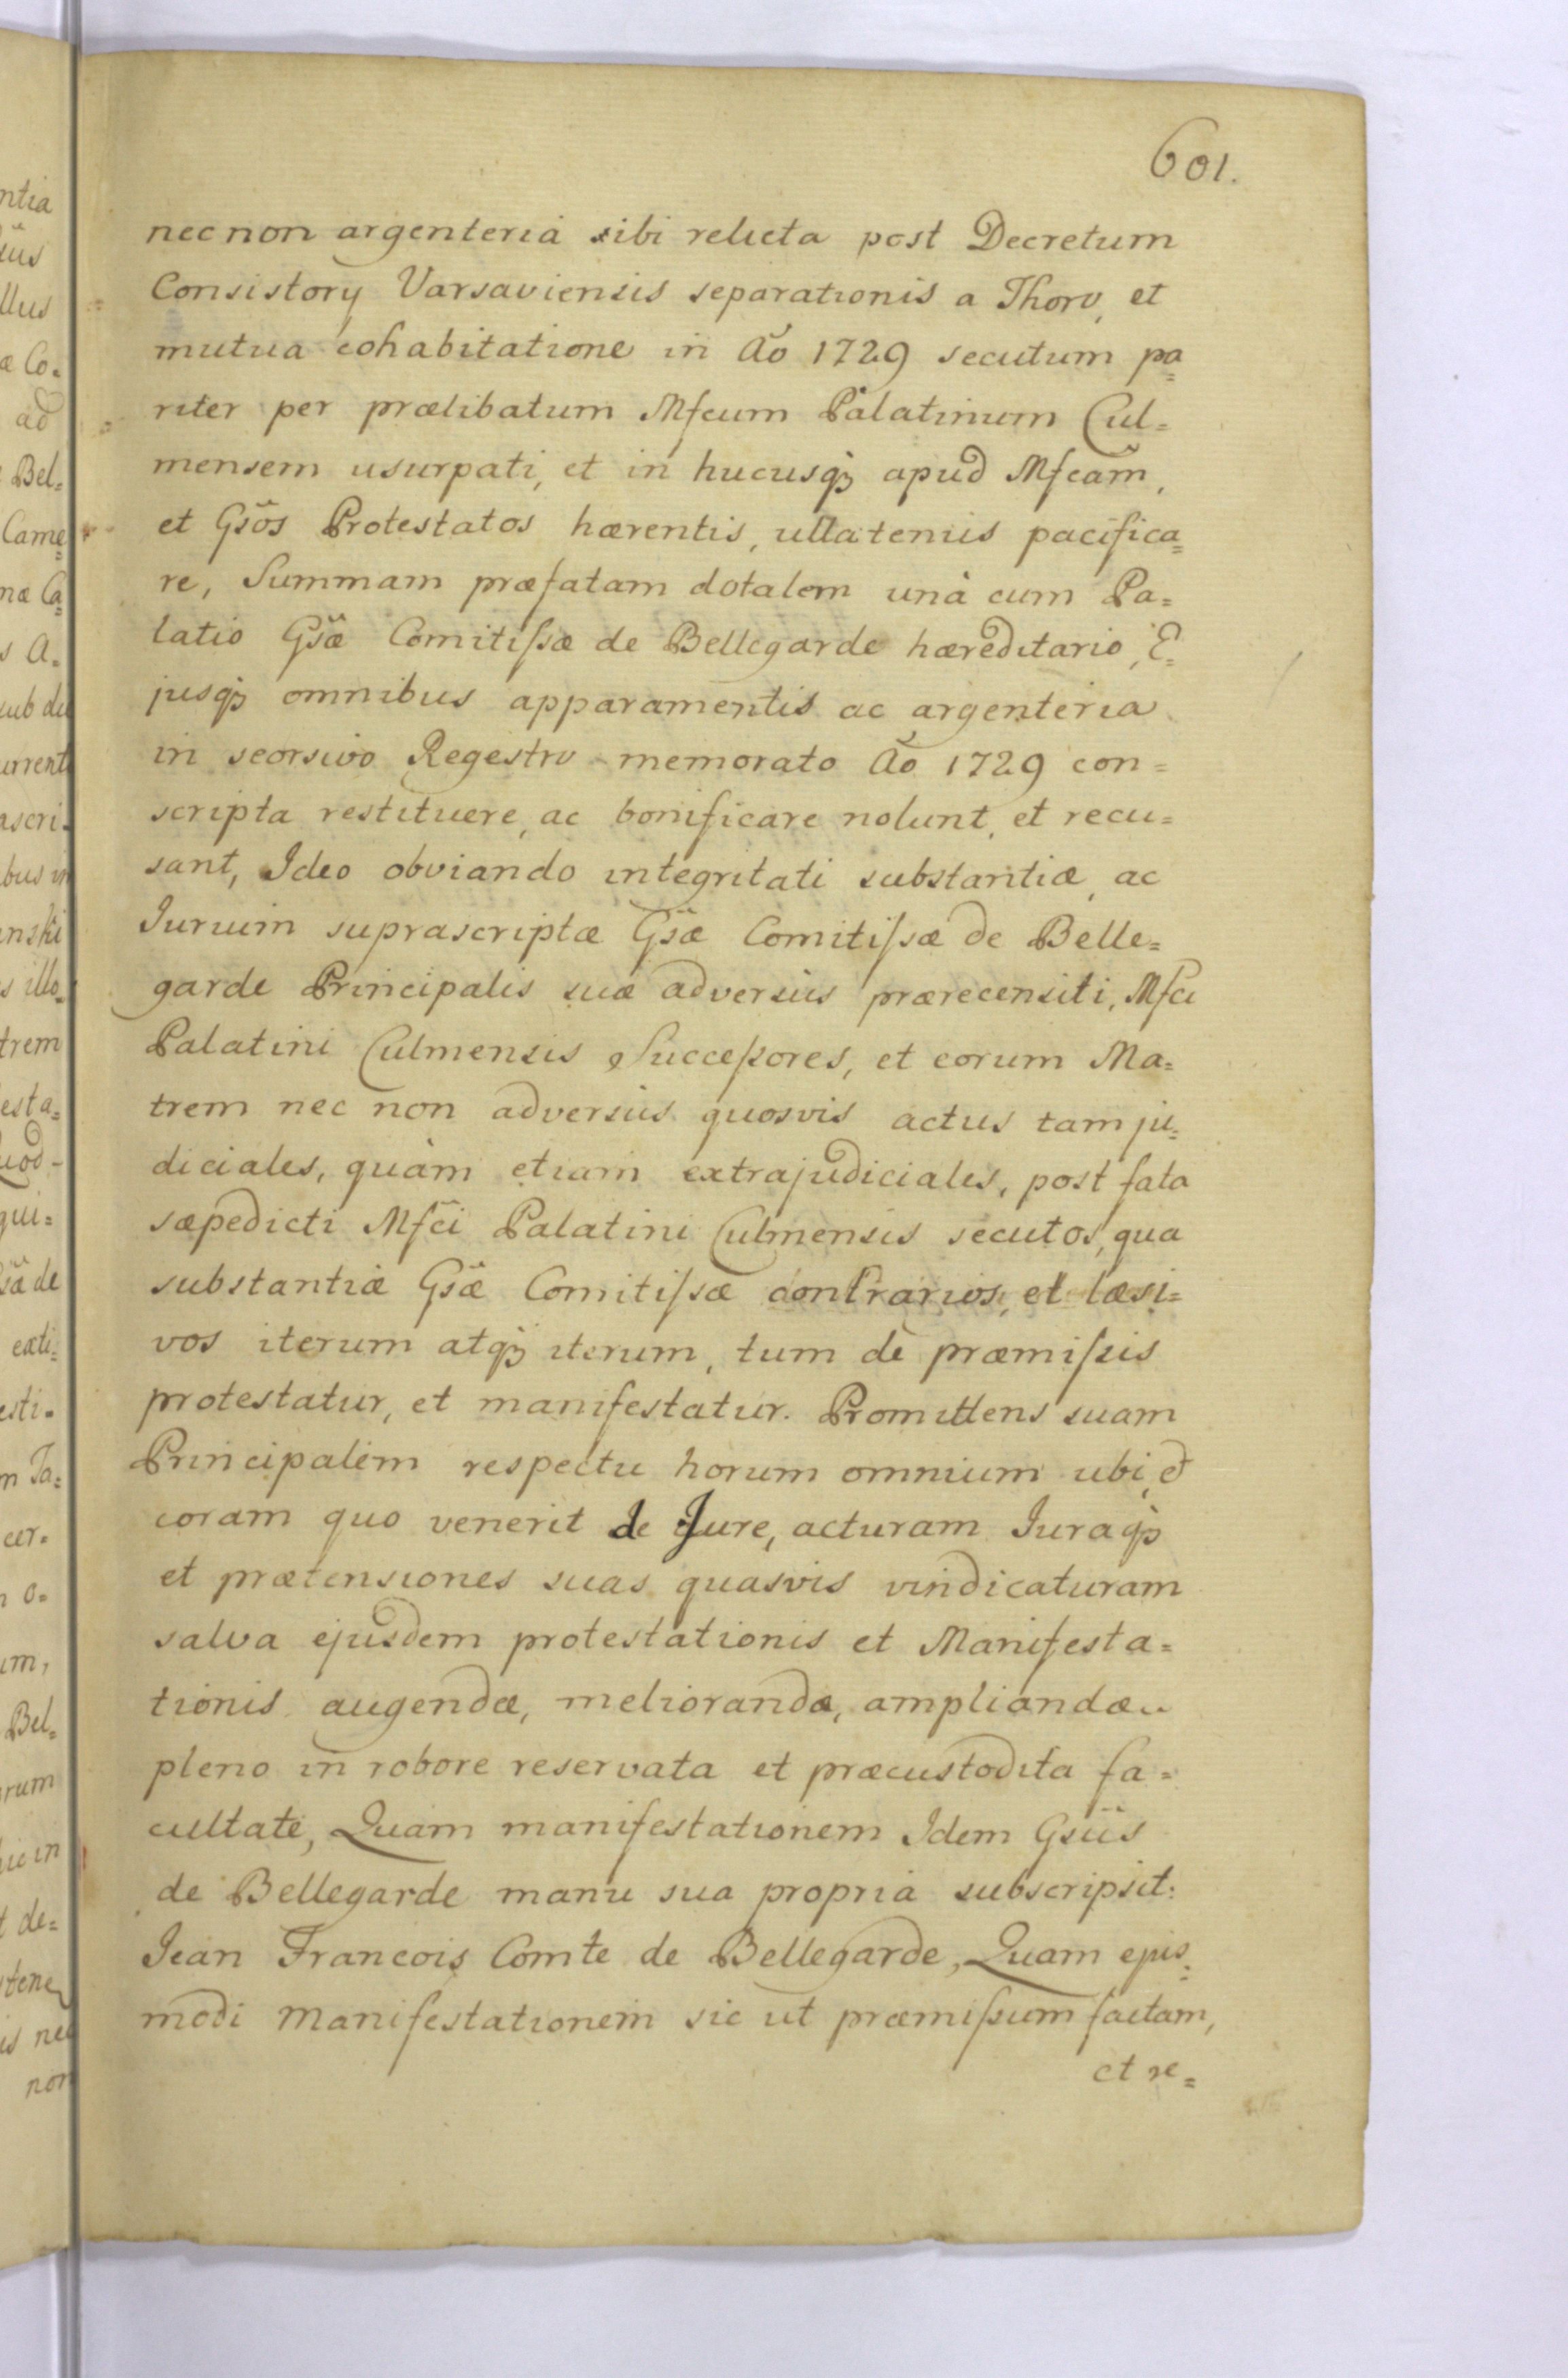 601.
nec non argenteria sibi relicta post Decretum
Consistorÿ Varsaviensis separationis a Thoro, et
mutua cohabitatione in Aõ 1729 secutum pa=
riter per prælibatum Mfcum Palatinum Cul=
mensem usurpati, et in hucusqꝫ apud Mfcam̃,
et Gsõs Protestatos hærentis, ullatenus pacifica=
re, Summam præfatam dotalem unà cum Pa=
latio Gsæ̃ Comitiſsæ de Bellegarde hæreditario, E=
jusqꝫ omnibus apparamentis ac argenteria
in seorsivo Registro memorato Aõ 1729 con=
scripta restituere, ac bonificare nolunt, et recu=
sant, Ideo obviando integritati substantiæ, ac
Jurium suprascriptæ Gsæ̃ Comitiſsæ de Belle=
garde Principalis suæ adversus prærecensiti, Mfci
Palatini Culmensis Succeſsores, et eorum Ma=
trem nec non adversus quosvis actus tam ju=
diciales, quàm etiam extrajudiciales, post fata
sæpedicti Mfc̃i Palatini Culmensis secutos, qua
substantiæ Gsæ̃ Comitiſsæ contrarios, et læsi=
vos iterum atqꝫ iterum, tum de præmiſsis
protestatur, et manifestatur. Promittens suam
Principalem respectu horum omnium ubi, et
coram quo venerit de Jure, acturam Juraqꝫ
et prætensiones suas quasvis vindicaturam
salva ejusdem protestationis et Manifesta=
tionis augendæ, meliorandæ, ampliandæ
pleno in robore reservata et præcustodita fa=
cultate, Quam manifestationem Idem Gsũs
de Bellegarde manu sua propria subscripsit:
Jean Francois Comte de Bellegarde, Quam ejus=
modi Manifestationem sic ut præmiſsum factam,
et re=
ntia
llus
æ Co=
ad
Bel=
Came=
næ Ca=
s A=
sub du
urrent
ascri=
bus in
enski
s illo=
trem
esta=
uod
qui=
sæ̃ de
eati=
esti=
m Ja=
cer=
n o=
um,
Bel=
rum
t de=
is nec
non